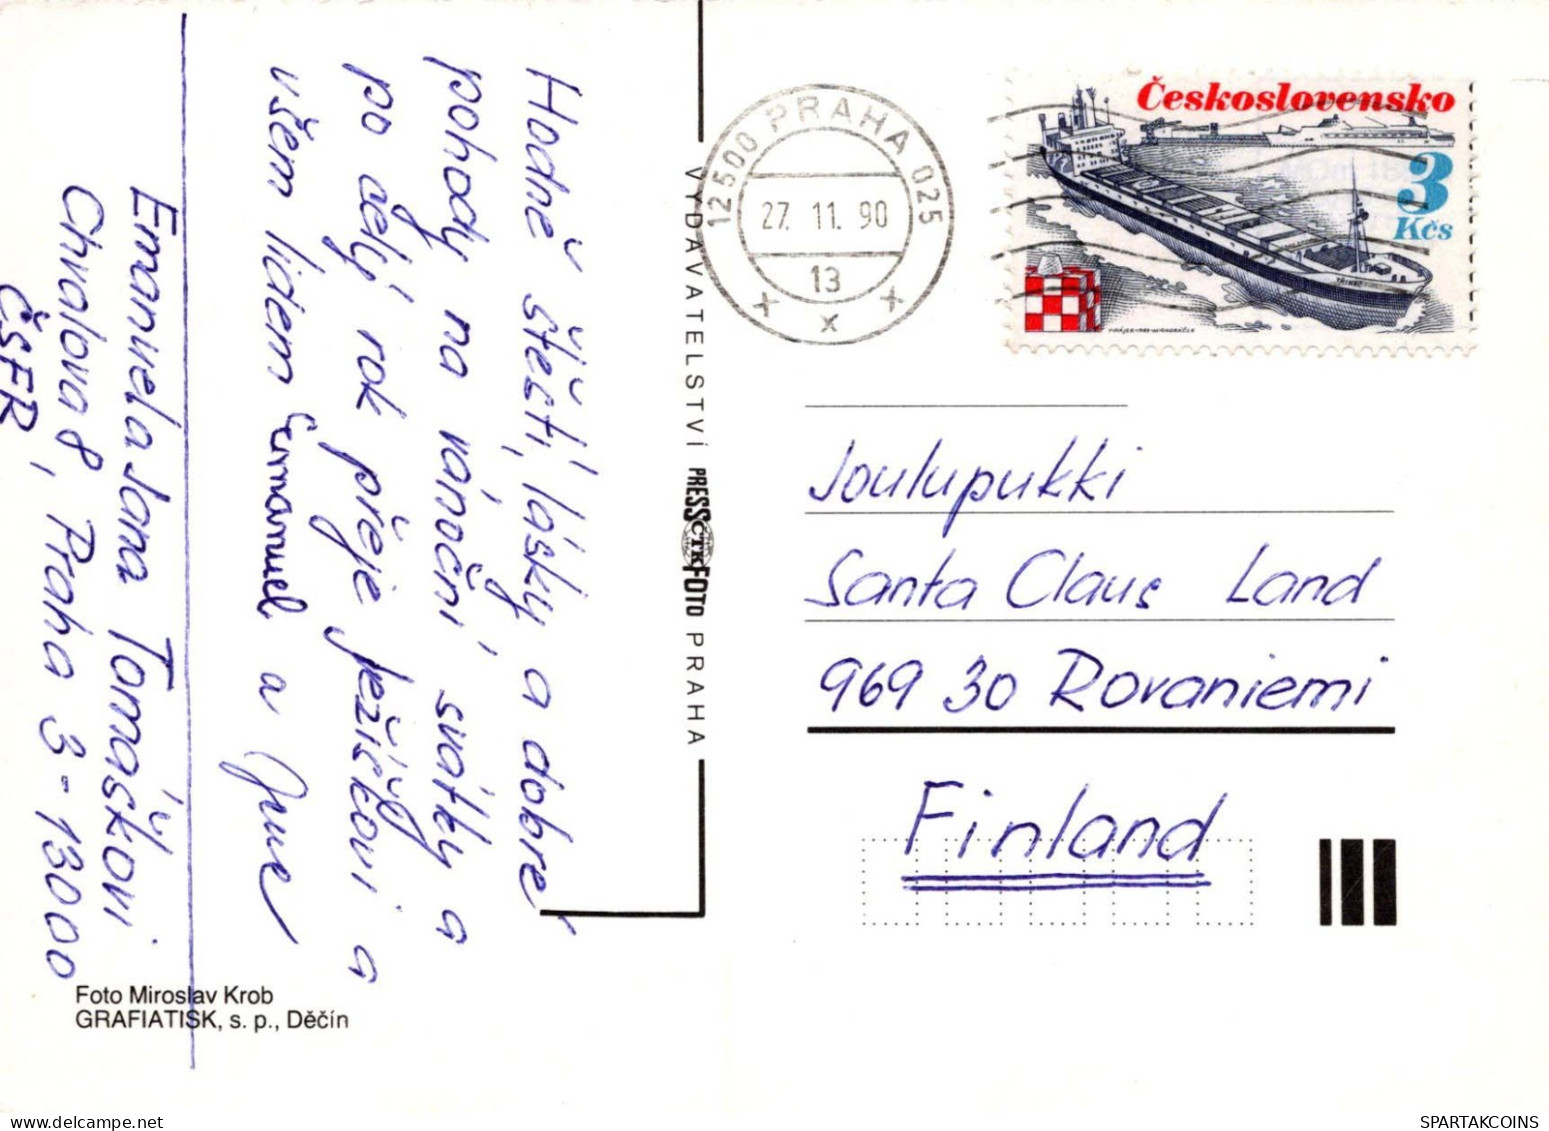 Hodně štěstí, lásky a dobré
pohody na vánoční svátky a
po celý rok přeje Ježíškovi a
všem lidem Emanuel a
Emanuela Jana Tomáškovi
Chvalova 8, Praha 3 - 13000
ČSFR
VYDAVATELSTVÍ PRESSFOTO PRAHA
ČTK
Foto Miroslav Krob
GRAFIATISK, s. p., Děčín
12500 PRAHA 025
27. 11. 90
13
x x x
Československo
3
Kčs
Joulupukki
Santa Claus Land
969 30 Rovaniemi
Finland
SPARTAKCOINS